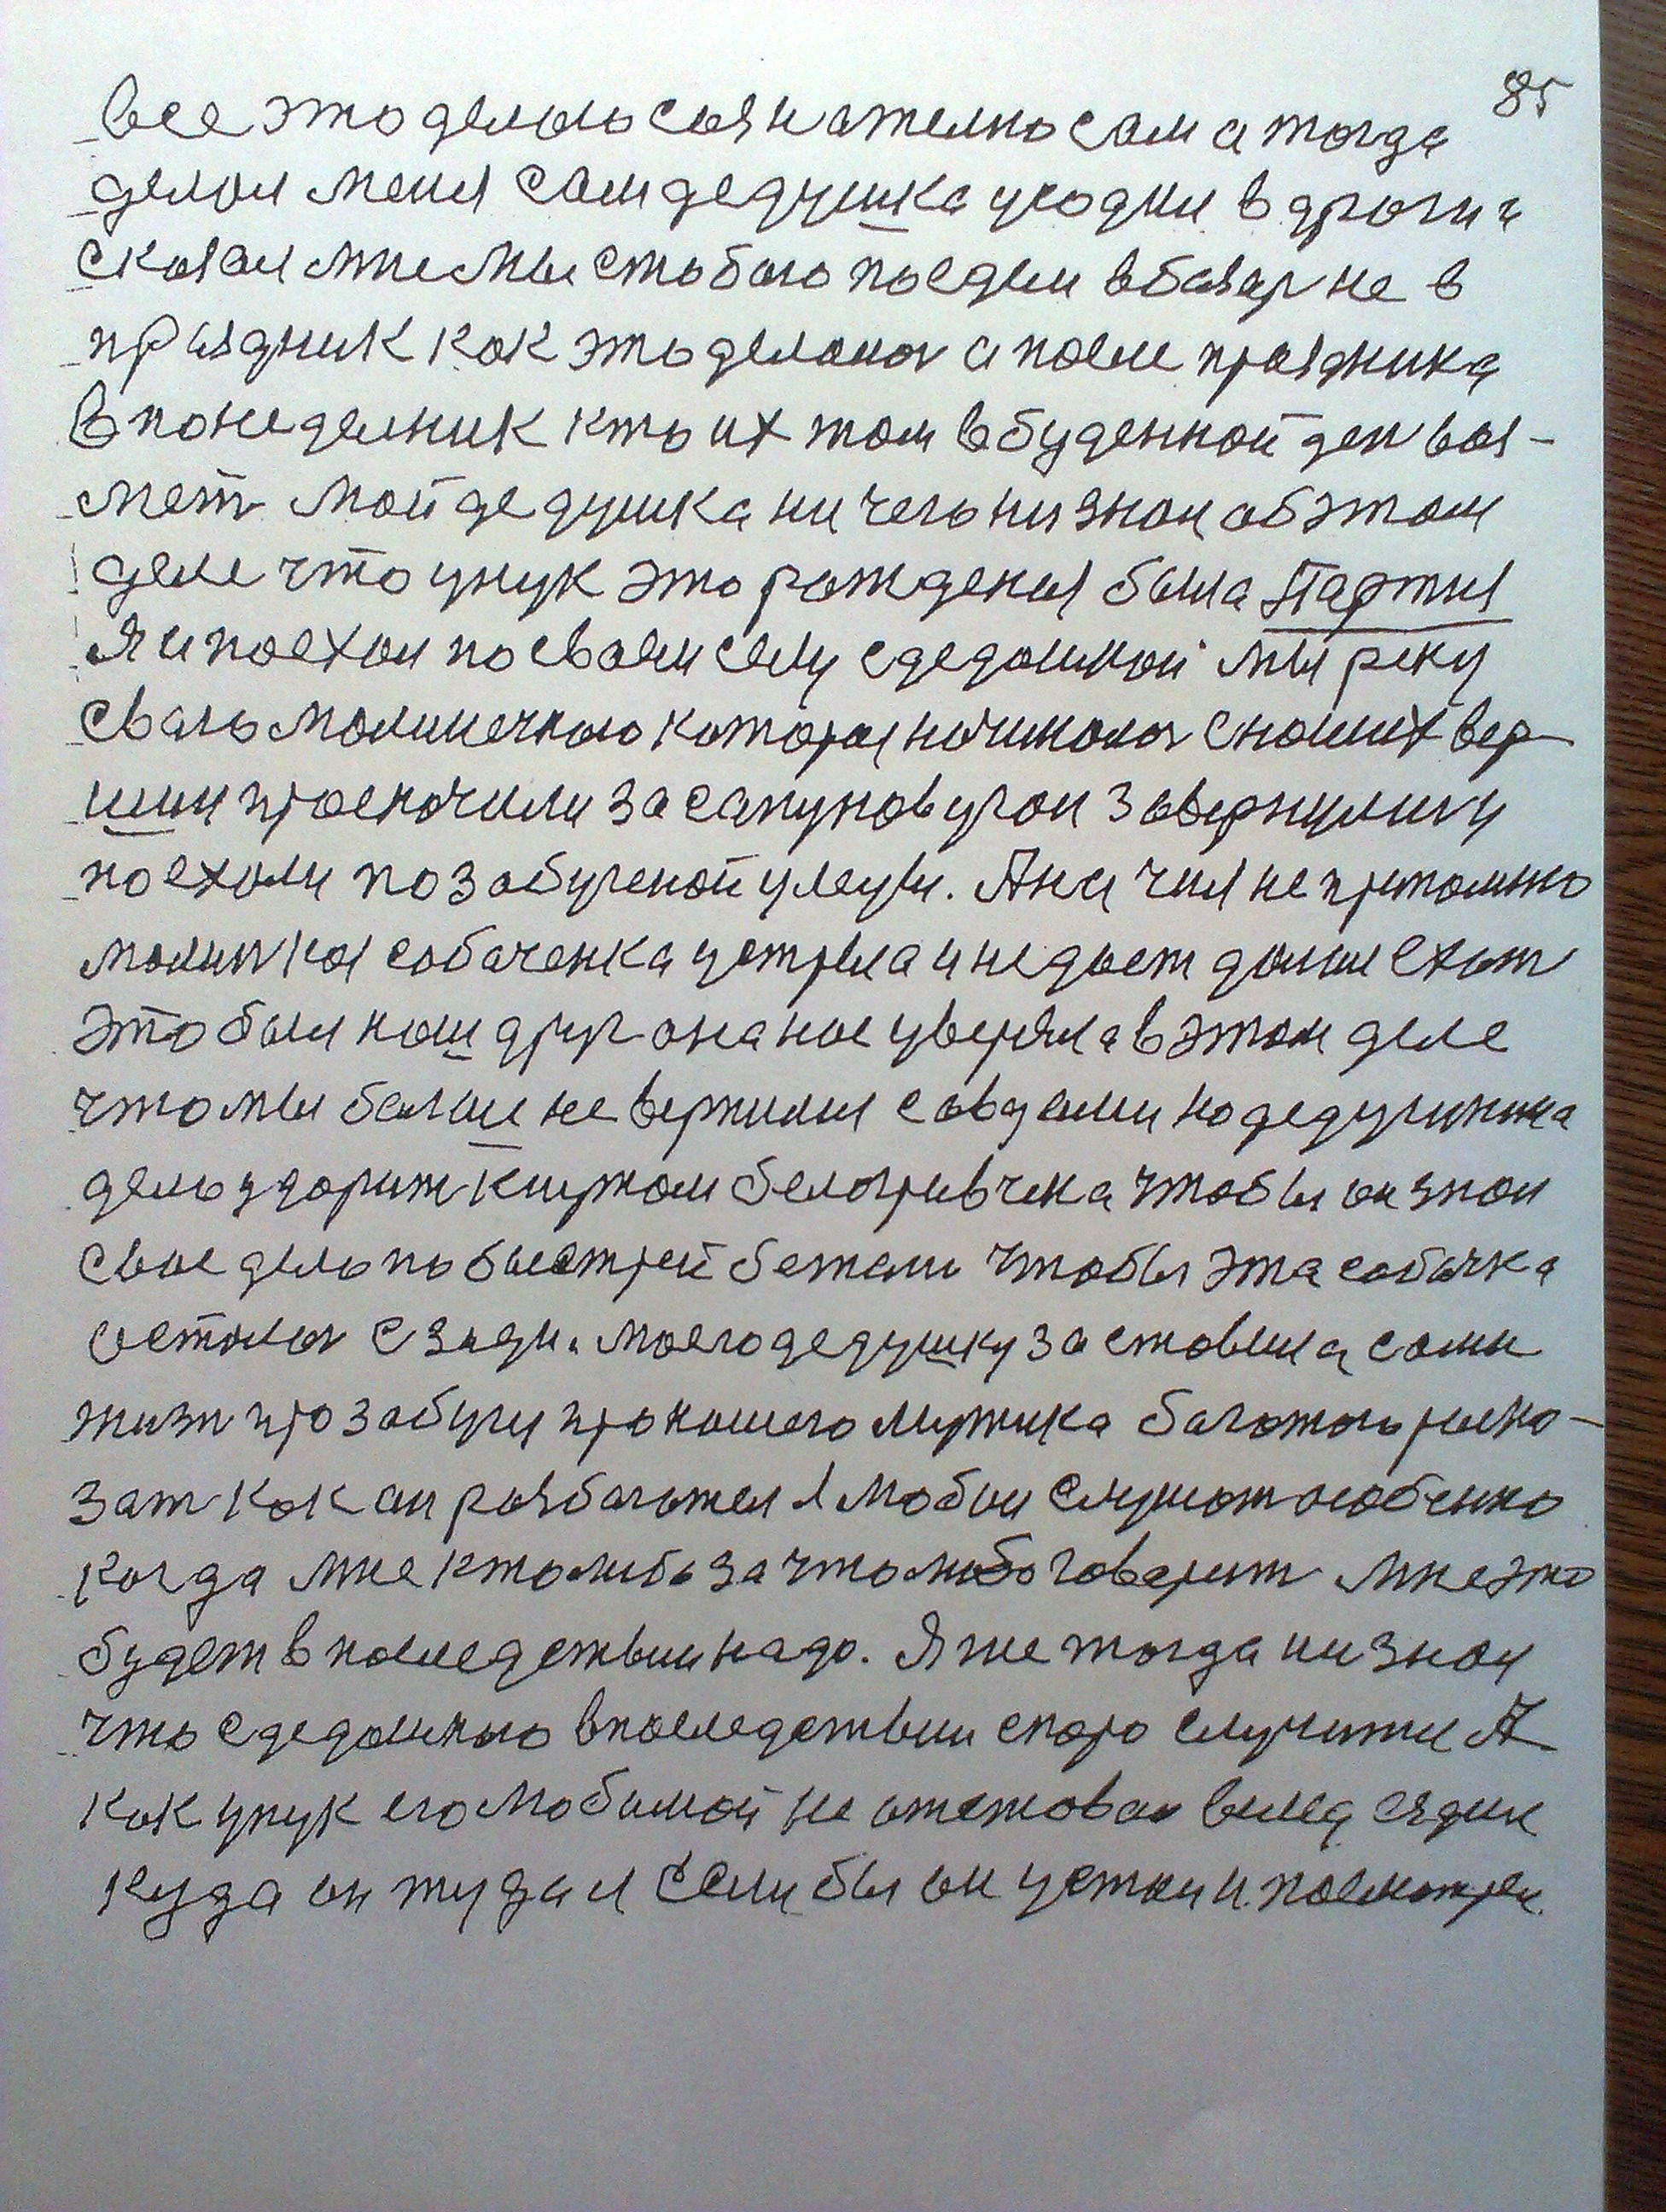 85
Все это делаю сознателно сам а тогда
делол меня сам дедушка усодил в дроги и
сказал мне мы стобою поедем в базар не в
праздник как это делалос а после праздника
в понеделник кто их там в буденной ден воз-
мет мой дедушка ни чего ни знал об этом
деле что унук это рождения была Партия
Я и поехал по своем селу с дедошкой мы реку
сваю малинечкаю каторая начиналас с наших вер
шин проскочили за сапунов угол завернули и
поехали по забугеной улеци. Ана чия не притомно
малинкая собаченка устрела и не дает далше ехат
Это был наш друг она нас уверяла в этом деле
что мы болше не вержимся с авдеми но дедушкина
дело ударит кнутом белогривчека чтобы он знал
свое дело по быстрей бежали чтобы эта собачка
осталас с зади. моего дедушку заставила сами
жизн про забугу про нашего мужика багатого раска-
зат как он разбагател я любил слушат особенно
когда мне кто либо за что либо говарит мне это
будет в последствии надо. Я же тогда ни знал
что с дедошкаю в последствии скоро случится А
как унук его любимой не отставал вслед ездил
куда он туда и я Если бы он устал и посмотрел